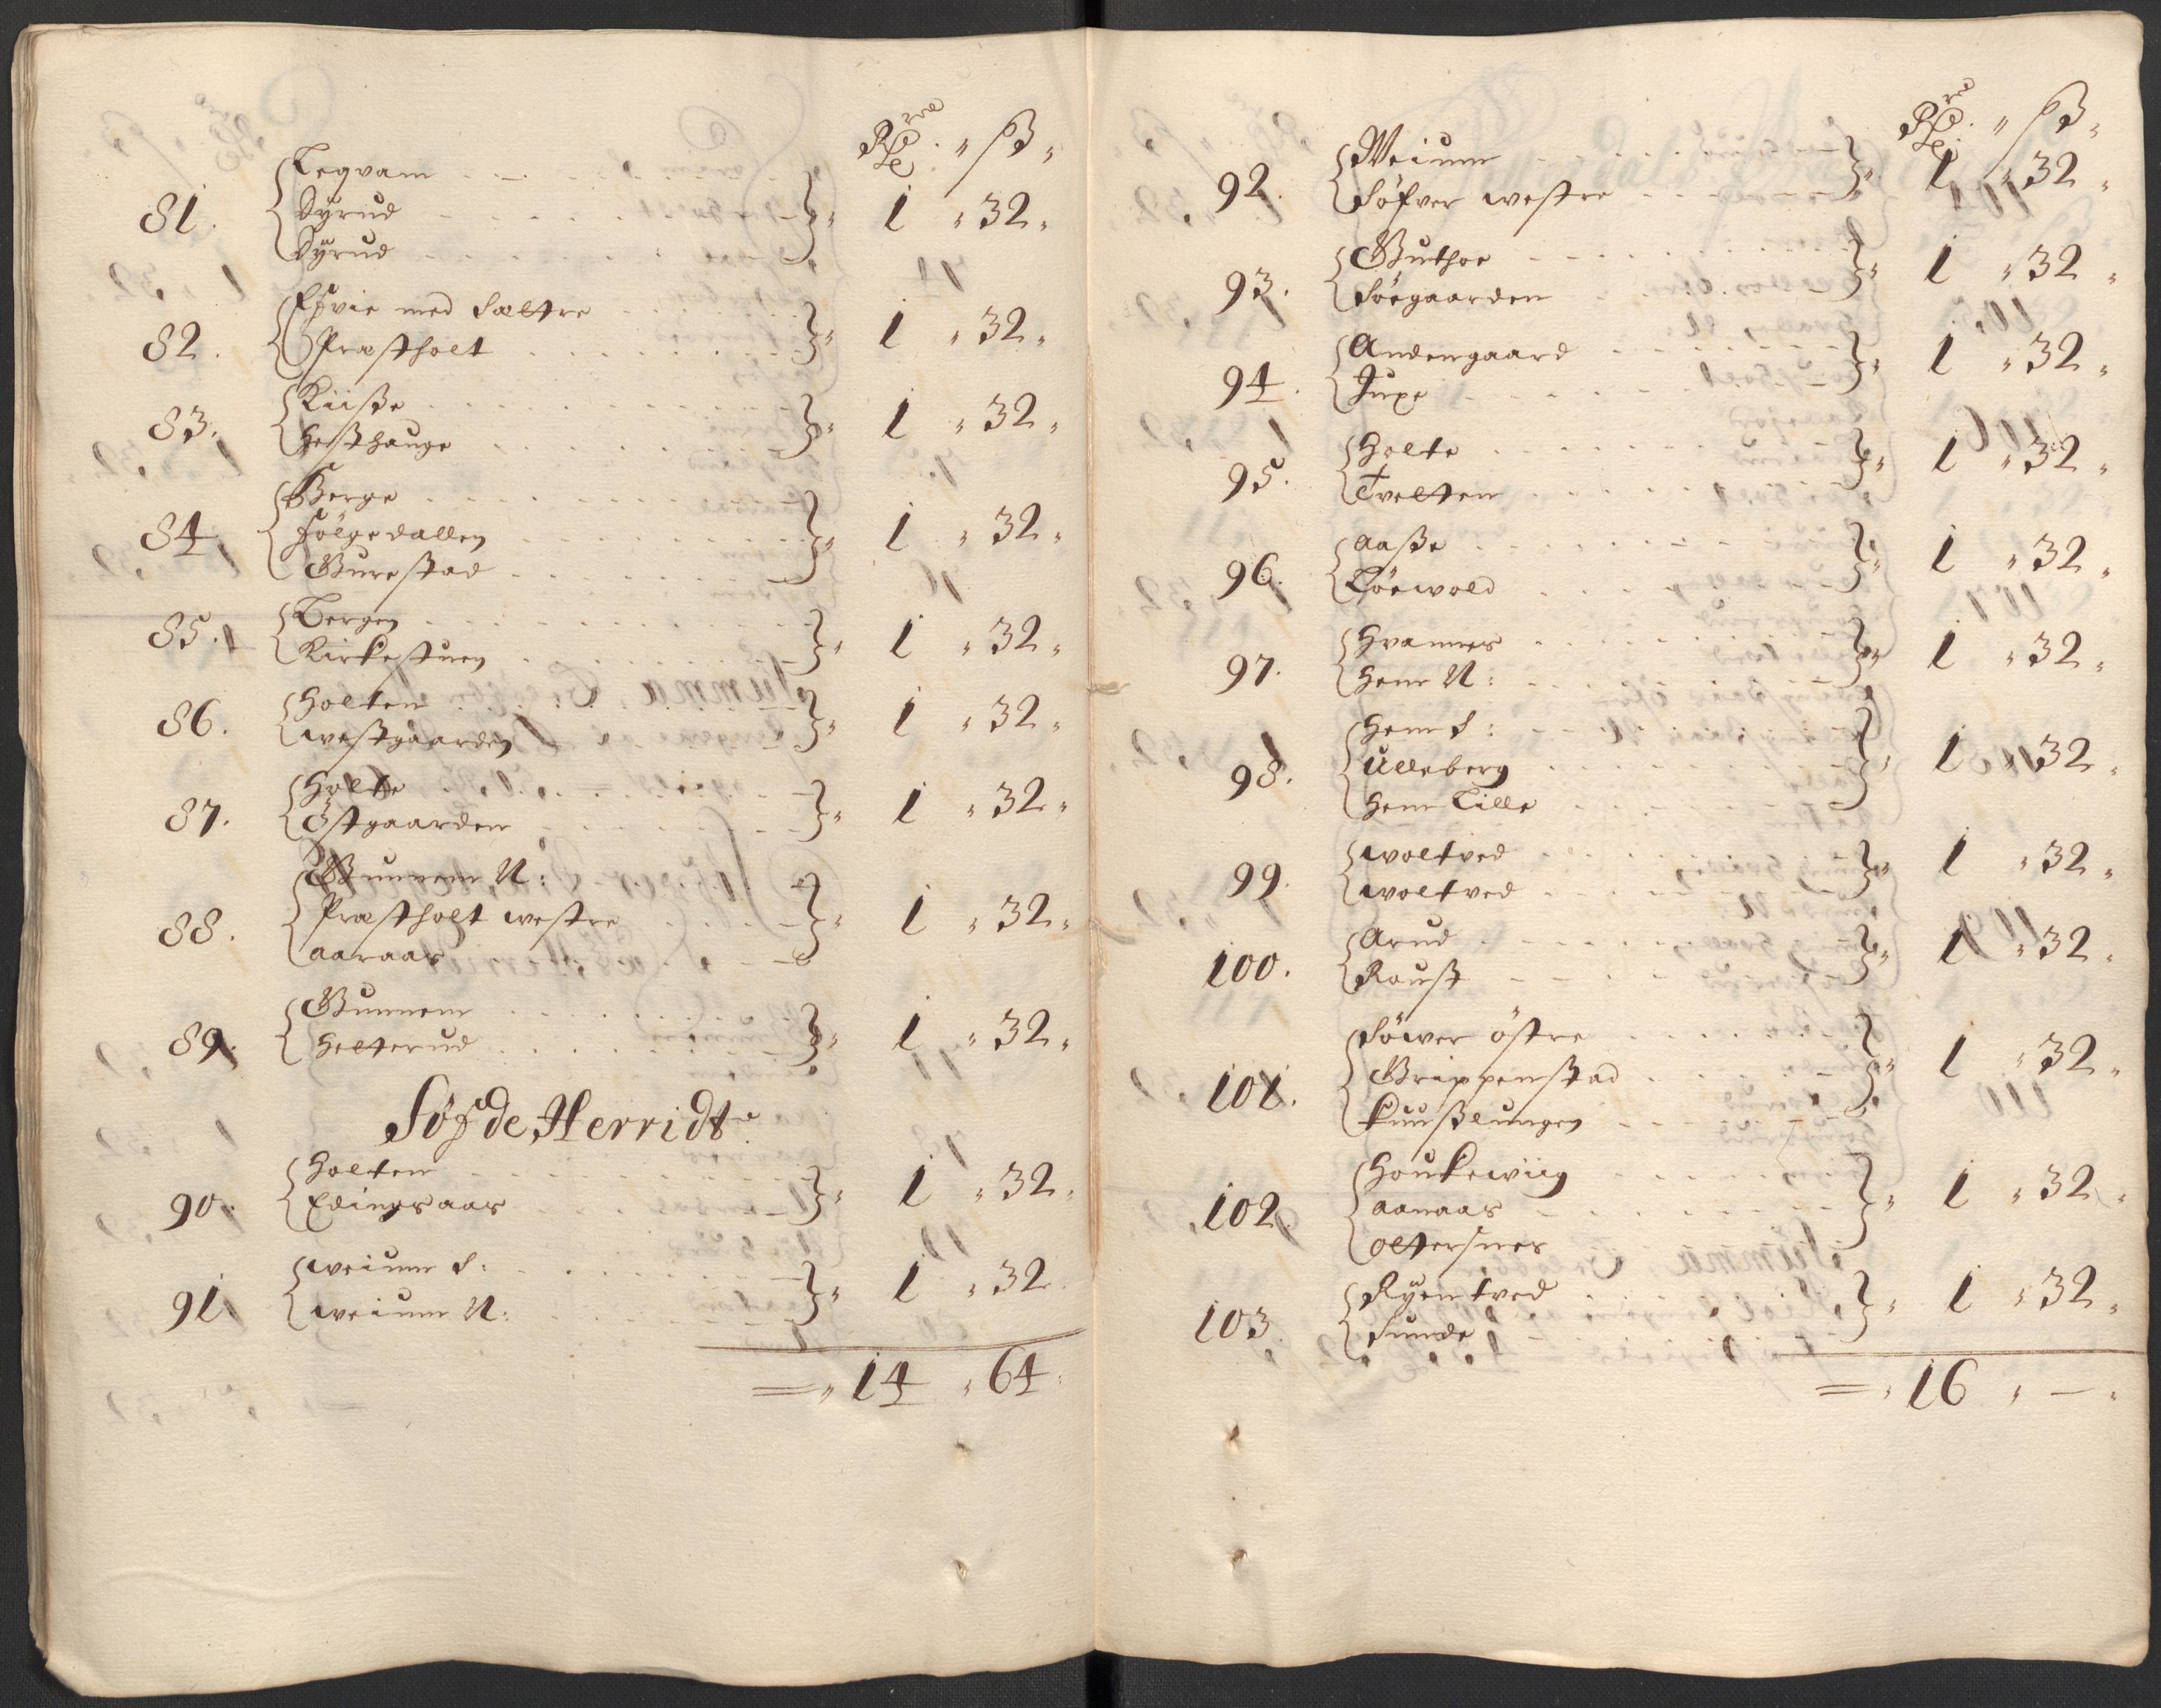 Rdr. ß
81. Legvam
Dÿrud
Dÿrud 1 32
82. Eßvie med Sæltre
Præstholt 1 32
83. Riiße
Hesthauge 1 32
84 Berge
Følgedallen
Gurestad 1 32
85. Bergen
Kirkestuen 1 32
86. Holten
westgaarden 1 32
87. Holte
Østgaarden 1 32
88. Gunnem N:
Præstholt westre
aaraas 1 32
89. Gunnem
Helterud 1 32
Søfde Herridt
90. Holten
Edingsaas 1 32
91. weium S:
weium N: 1 32
14 64
Rdr. ß
92. Weium
Söfver westre 1 32
93. Guthoe
Söegaarden 1 32
94. Andengaard
Juxe 1 32
95. Holte
Tvelten 1 32
96. Aaße
Löewold 1 32
97. Hvannes
Hem N: 1 32
98. Hem S:
Ulleberg
Hem Lille 1 32
99. woltved
woltved 1 32
100. Arud
Roust 1 32
101. Söwer östre
Grippenstad
Kuußlungen 1 32
102. Houkewiig
aanaas
oltersnes 1 32
103. Ryentved
Sunde 1 32
16 —